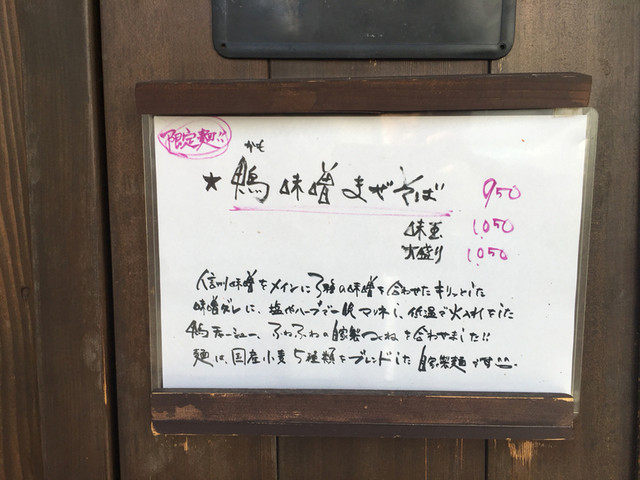 限定麺!!
かも
★ 鴨味噌まぜそば 950
味玉 1,050
大盛り 1,050
信州味噌をメインに3種の味噌を合わせたキリッとした
味噌ダレに、塩やハーブで一晩マリネし、低温で火入れをした
鴨チャーシュー、ふわふわの自家製つくねを合わせました!!
麺は、国産小麦5種類をブレンドした自家製麺です